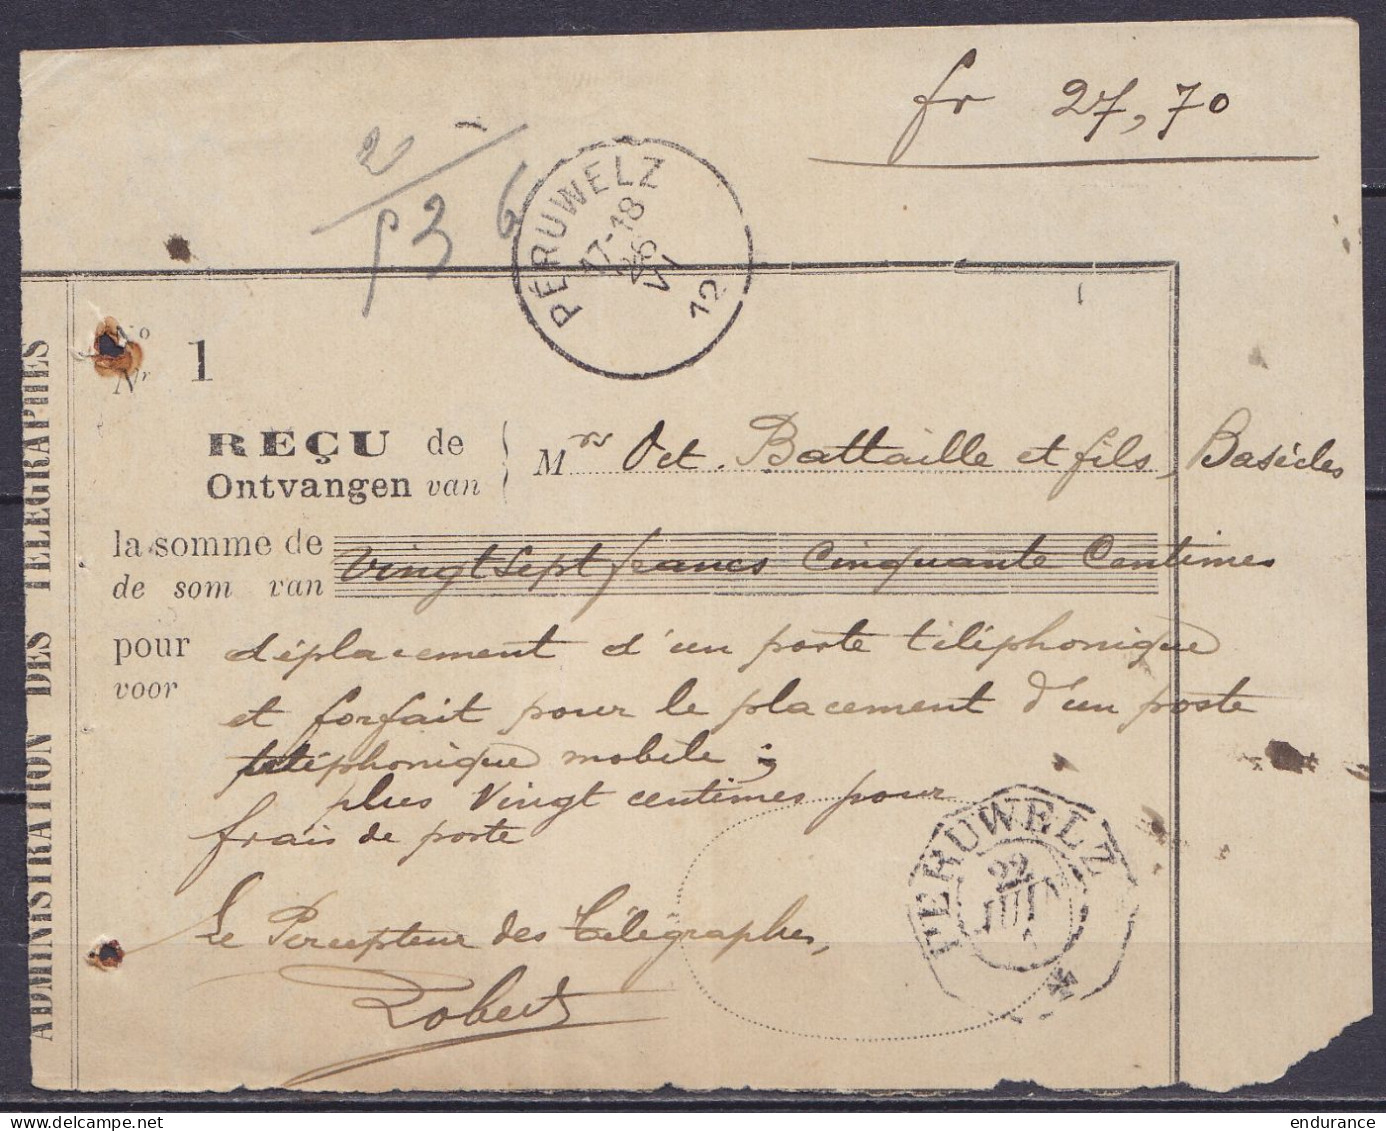 fr 27,70
2
536
PÉRUWELZ
17-18
26
VI
12
No
Nr 1
REÇU de
Ontvangen van
Mrs Oct. Battaille et fils, Basècles
la somme de
de som van
Vingt sept francs Cinquante Centimes
pour
voor
déplacement d'un poste téléphonique
et forfait pour le placement d'un poste
téléphonique mobile ;
plus vingt centimes pour
frais de porte
Le Percepteur des Télégraphes,
Robert
PERUWELZ
22
JUIN
ADMINISTRATION DES TELEGRAPHES
endurance